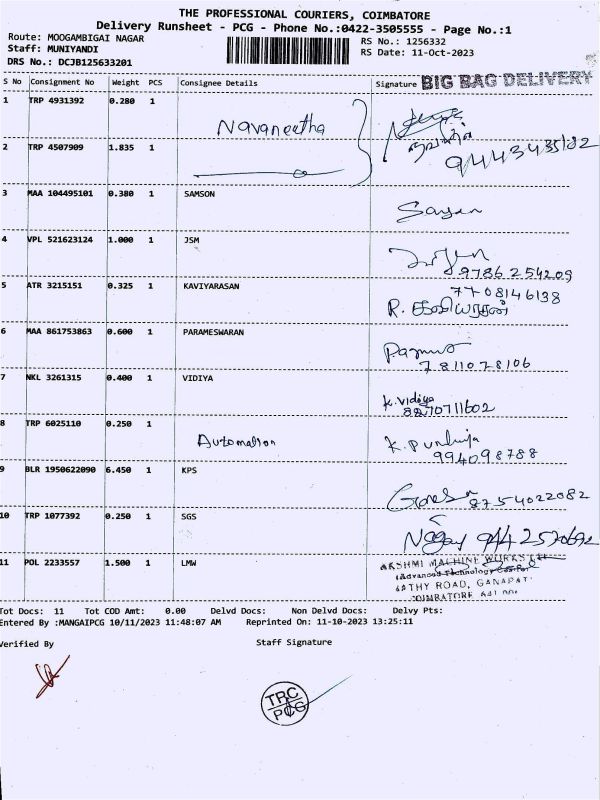 THE PROFESSIONAL COURIERS, COIMBATORE
Delivery Runsheet - PCG - Phone No.:0422-3505555 - Page No.:1
Route: MOOGAMBIGAI NAGAR
RS No.: 1256332
Staff: MUNIYANDI
RS Date: 11-Oct-2023
DRS No.: DCJB125633201
S No Consignment No Weight PCS Consignee Details Signature BIG BAG DELIVERY
1 TRP 4931392 0.280 1
Navaneetha
2 TRP 4507909 1.835 1
3 MAA 104495101 0.380 1 SAMSON
4 VPL 521623124 1.000 1 JSM
9786254209
5 ATR 3215151 0.325 1 KAVIYARASAN 7708146138
R. கவியரசன்
6 MAA 861753863 0.600 1 PARAMESWARAN
7811078106
7 NKL 3261315 0.400 1 VIDIYA
K. Vidiya
8270711602
8 TRP 6025110 0.250 1
Automation
994098788
9 BLR 1950622090 6.450 1 KPS
8754022082
10 TRP 1077392 0.250 1 SGS
11 POL 2233557 1.500 1 LMW
AKSHMI MACHINE WORKS
(Advanced Technology
ATHY ROAD, GANAPAT
COIMBATORE
Tot Docs: 11 Tot COD Amt: 0.00 Delvd Docs: Non Delvd Docs: Delvy Pts:
Entered By :MANGAIPCG 10/11/2023 11:48:07 AM Reprinted On: 11-10-2023 13:25:11
Verified By Staff Signature
TRC
PCG